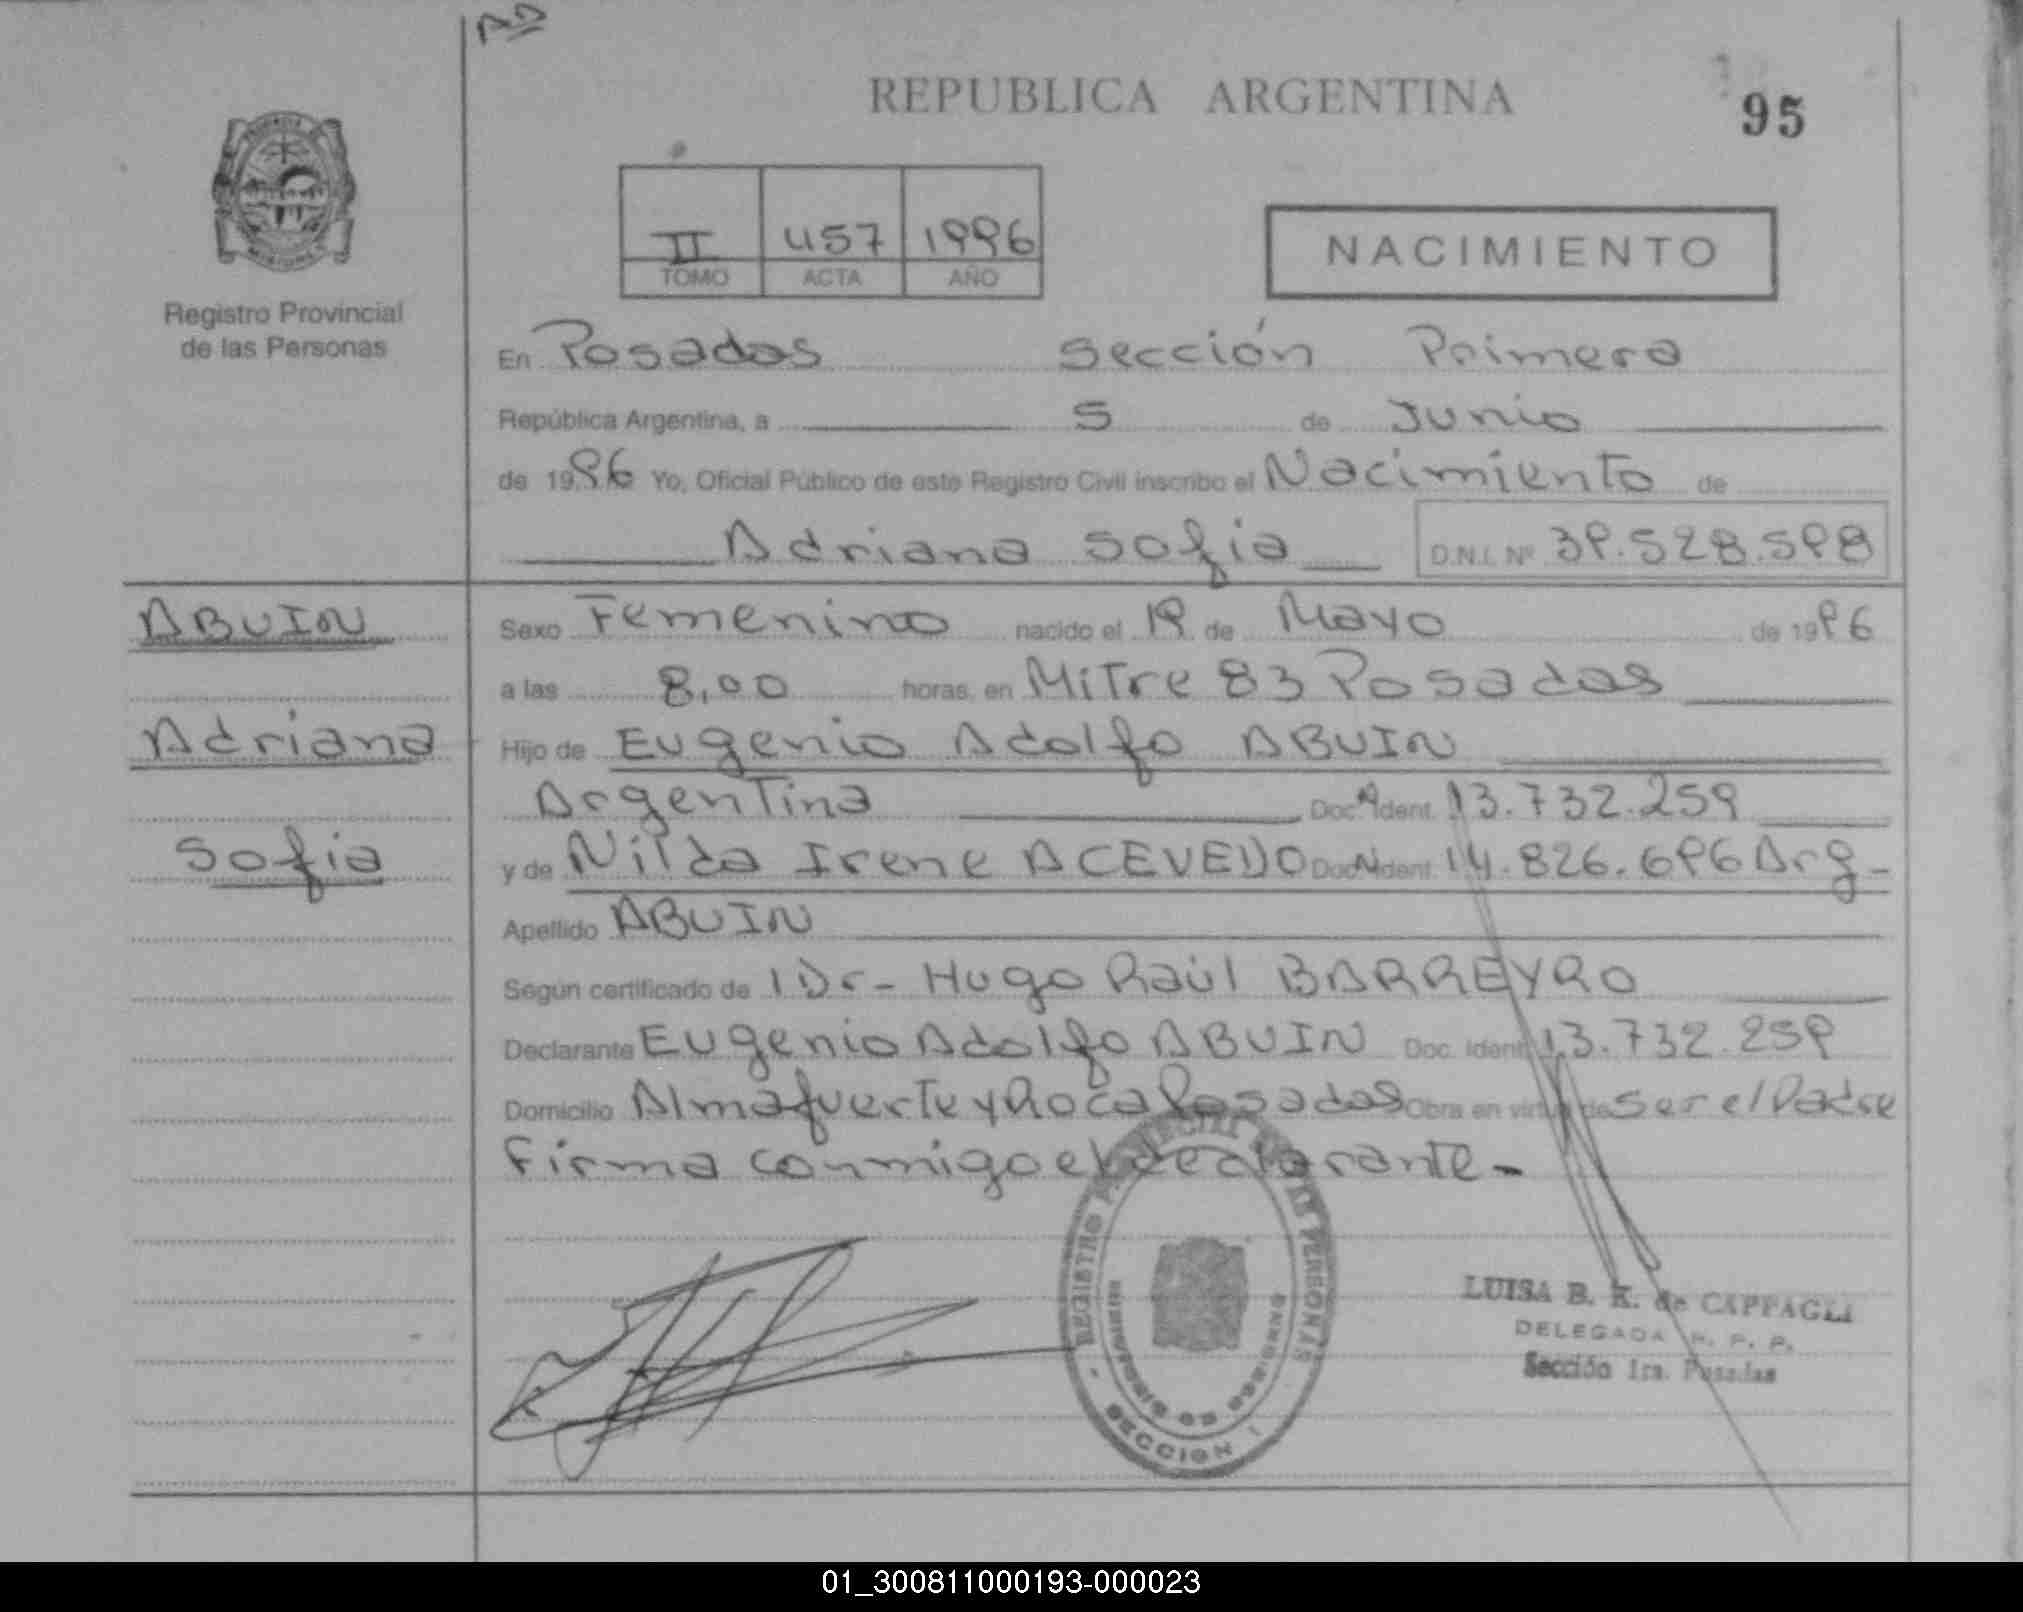 REPUBLICA ARGENTINA
95
II 457 1996
TOMO ACTA AÑO
NACIMIENTO
Registro Provincial
de las Personas
En Posadas sección Primera
República Argentina, a 5 de Junio
de 1996 Yo, Oficial Público de este Registro Civil inscribo el Nacimiento de
Adriana Sofia D.N.I. Nº 39.528.598
ABUIN
Adriana
Sofia
Sexo Femenino nacido el 19 de Mayo de 1996
a las 8,00 horas, en Mitre 83 Posadas
Hijo de Eugenio Adolfo ABUIN
Argentina Doc. Ident. 13.732.259
y de Nilda Irene ACEVEDO Doc. Ident. 14.826.696 Arg-
Apellido ABUIN
Según certificado de 1 Dr- Hugo Raúl BARREYRO
Declarante Eugenio Adolfo ABUIN Doc. Ident. 13.732.259
Domicilio Almafuerte y Roca Posadas Obra en virtud de ser el Padre
Firma conmigo el declarante-
REGISTRO PROVINCIAL DE LAS PERSONAS
SECCION 1
LUISA B. K. de CAPPAGLI
DELEGADA R. P. P.
Sección 1ra. Posadas
01_300811000193-000023